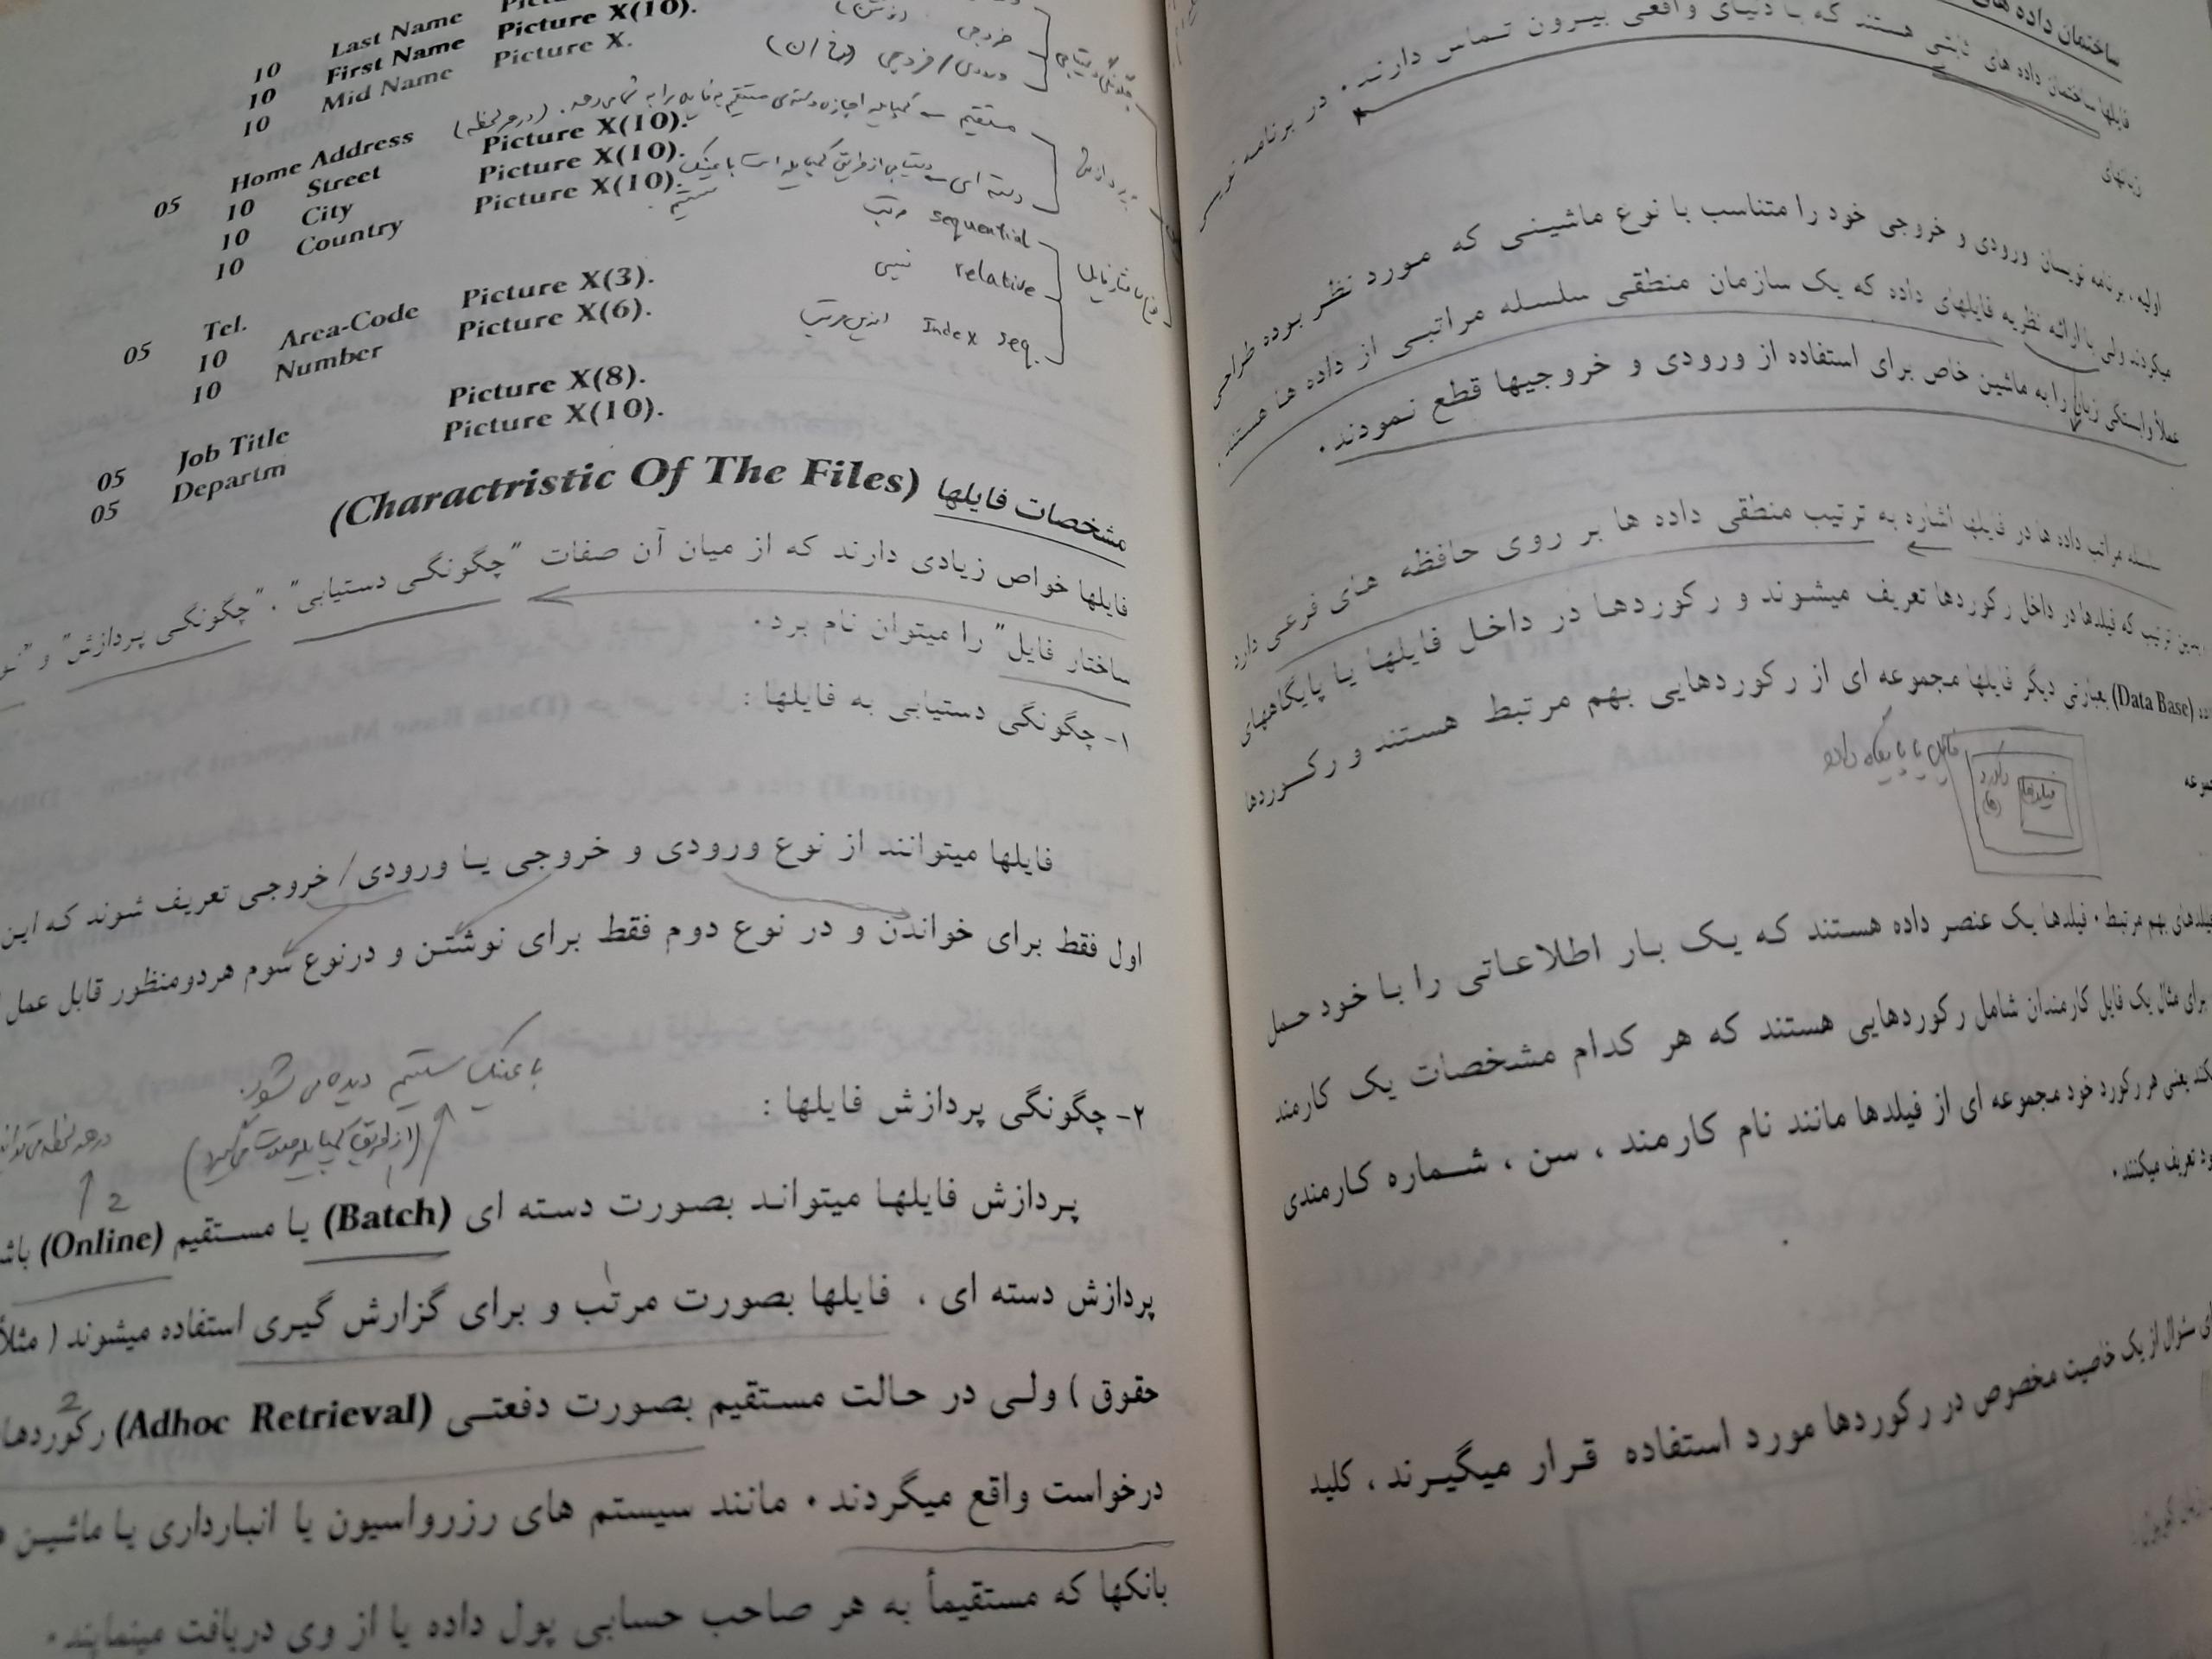 ساختمان داده های
فایلها ساختمان داده های ثابتی هستند که با دنیای واقعی بیرون تماس دارند. در برنامه نویسی
زبانهای
اولیه، برنامه نویسان ورودی و خروجی خود را متناسب با نوع ماشینی که مورد نظر بوده طراحی
میکردند ولی با ارائه نظریه فایلهای داده که یک سازمان منطقی سلسله مراتبی از داده ها هستند،
عملاً وابستگی زبان را به ماشین خاص برای استفاده از ورودی و خروجیها قطع نمودند.
سلسله مراتب داده ها در فایلها اشاره به ترتیب منطقی داده ها بر روی حافظه های فرعی دارد
بدین ترتیب که فیلدها در داخل رکوردها تعریف میشوند و رکوردها در داخل فایلها یا پایگاههای
(Data Base) بعبارتی دیگر فایلها مجموعه ای از رکوردهایی بهم مرتبط هستند و رکوردها
فایل یا پایگاه داده
رکورد ها
فیلدها
فیلدهای بهم مرتبط. فیلدها یک عنصر داده هستند که یک بار اطلاعاتی را با خود حمل
برای مثال یک فایل کارمندان شامل رکوردهایی هستند که هر کدام مشخصات یک کارمند
یعنی هر رکورد خود مجموعه ای از فیلدها مانند نام کارمند، سن، شماره کارمندی
تعریف میکنند.
سئوال از یک خاصیت مخصوص در رکوردها مورد استفاده قرار میگیرند، کلید
Last Name
10 First Name Picture X(10).
10 Mid Name Picture X.
10
05 Home Address
10 Street Picture X(10).
10 City Picture X(10).
10 Country Picture X(10).
05 Tel.
10 Area-Code Picture X(3).
10 Number Picture X(6).
05 Job Title Picture X(8).
05 Departm Picture X(10).
خروجی
ورودی/خروجی
مستقیم
دسته ای
sequential مرتب
relative نسبی
Index seq.
مشخصات فایلها (Charactristic Of The Files)
فایلها خواص زیادی دارند که از میان آن صفات "چگونگی دستیابی"، "چگونگی پردازش" و
ساختار فایل" را میتوان نام برد.
۱- چگونگی دستیابی به فایلها :
فایلها میتوانند از نوع ورودی و خروجی یا ورودی/خروجی تعریف شوند که این
اول فقط برای خواندن و در نوع دوم فقط برای نوشتن و درنوع سوم هردومنظور قابل عمل
با عینک سیستم دیده می شود.
۲- چگونگی پردازش فایلها :
2
پردازش فایلها میتواند بصورت دسته ای (Batch) یا مستقیم (Online)
پردازش دسته ای ، فایلها بصورت مرتب و برای گزارش گیری استفاده میشوند ( مثلاً
حقوق ) ولی در حالت مستقیم بصورت دفعتی (Adhoc Retrieval) رکوردها
درخواست واقع میگردند. مانند سیستم های رزرواسیون یا انبارداری یا ماشین
بانکها که مستقیماً به هر صاحب حسابی پول داده یا از وی دریافت مینمایند.